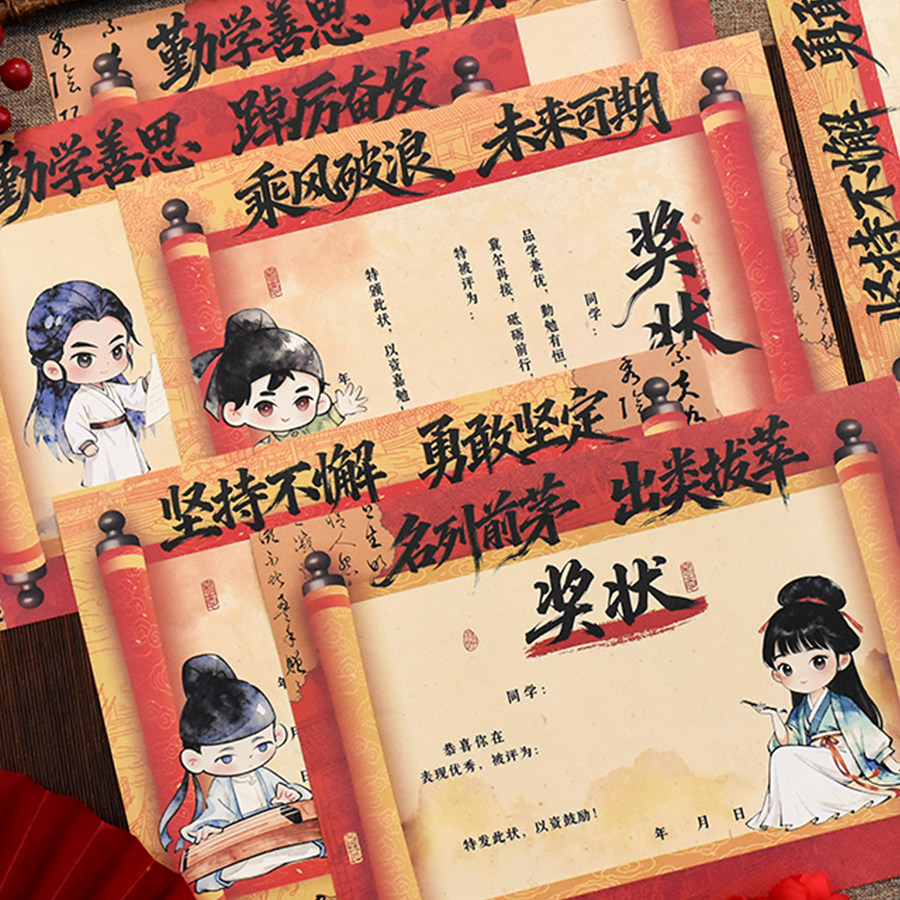 勤学善思
勤学善思 踔厉奋发
乘风破浪 未来可期
奖状
同学：
品学兼优，勤勉有恒，
冀尔再接，砥砺前行，
特被评为：
特颁此状，以资嘉勉，
年
坚持不懈 勇敢坚定
年
月
日
名列前茅 出类拔萃
奖状
同学：
恭喜你在
表现优秀，被评为：
特发此状，以资鼓励！
年 月 日
坚持不懈 勇